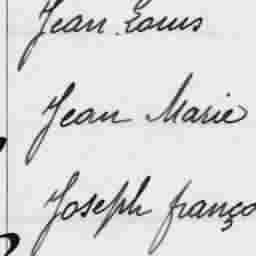 Jean Louis
Jean Marie
Joseph franço